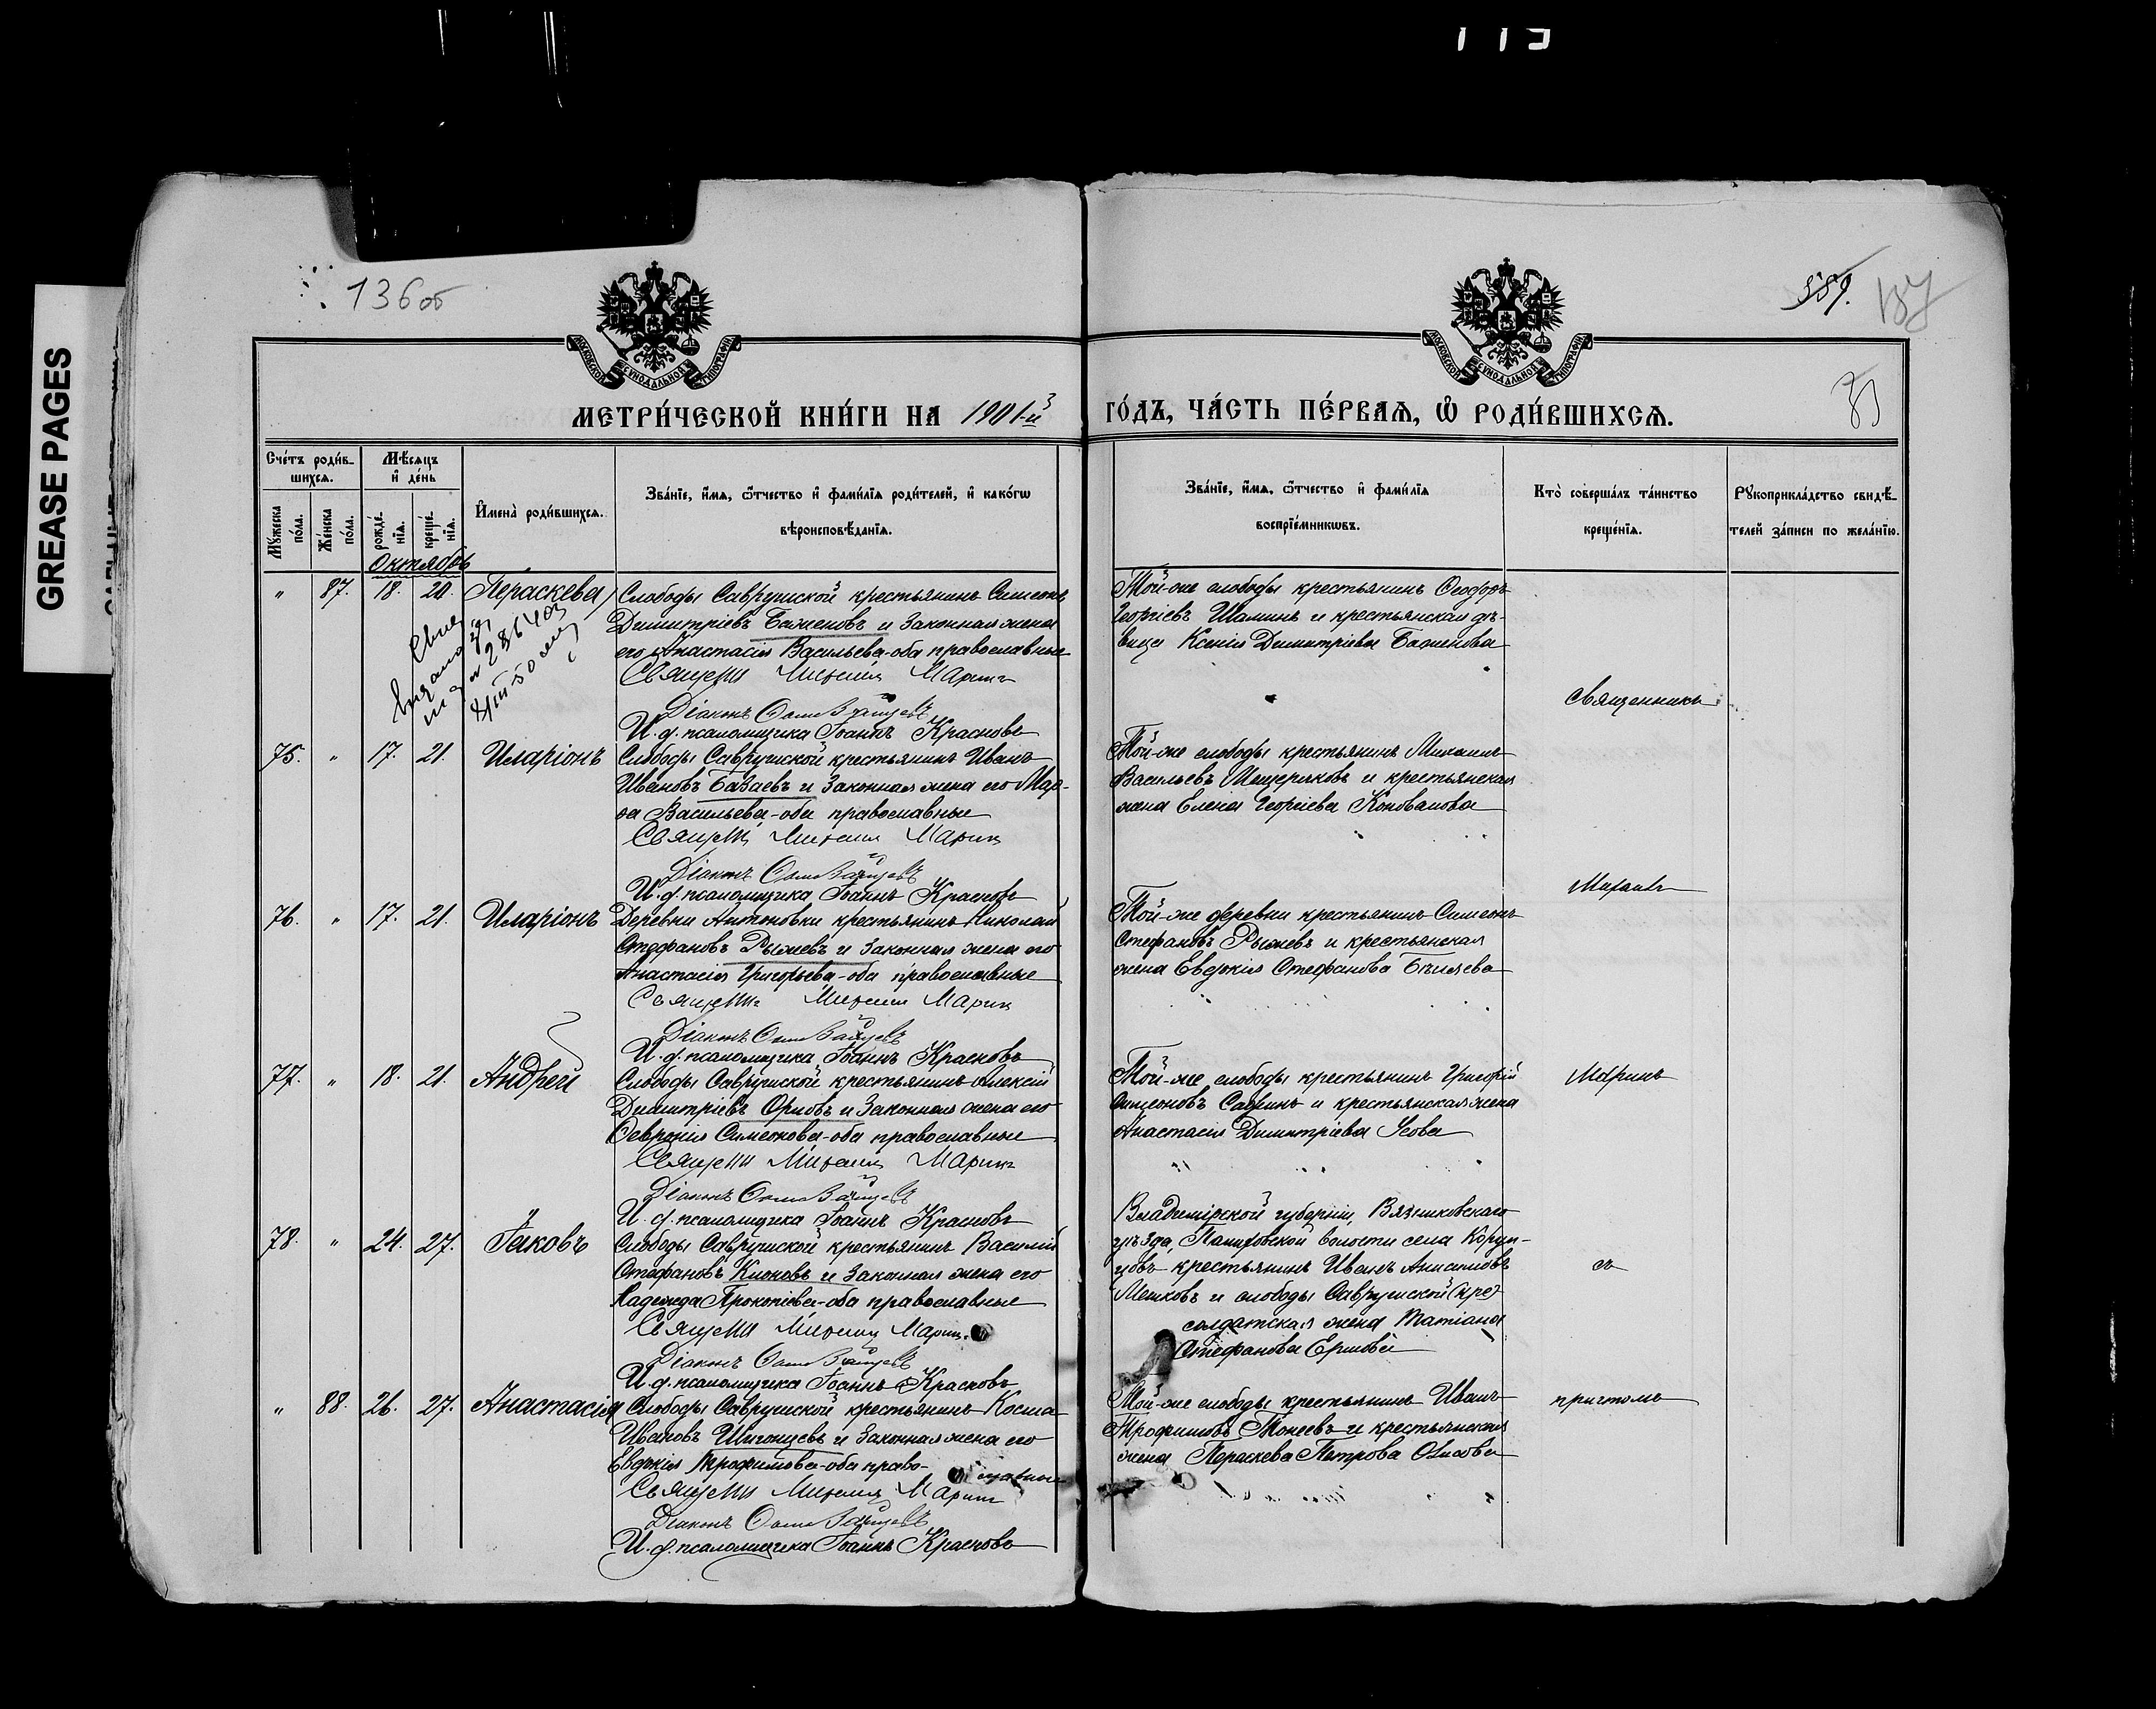 119
GREASE PAGES
136 об
389.
137
МОСКОВСКОЙ СУНОДАЛЬНОЙ ТИПОГРАФІИ
МОСКОВСКОЙ СУНОДАЛЬНОЙ ТИПОГРАФІИ
МЕТРИ́ЧЕСКОЙ КНИ́ГИ НА 1901-й ГО́ДЪ, ЧА́СТЬ ПЕ́РВАЯ, Ѡ РОДИ́ВШИХСЯ.
Сче́тъ роди́в-
шихся.
Мѣ́сяцъ
и де́нь
Му́жеска
по́ла.
Же́нска
по́ла.
рожде́-
нія.
креще́-
нія.
И҆мена̀ роди́вшихся.
Зва́ніе, и҆́мя, ѻ҆́тчество и҆ фами́лія роди́телей, и҆ како́гѡ
вѣроисповѣ́данія.
Зва́ніе, и҆́мя, ѻ҆́тчество и҆ фами́лія
воспріе́мниковъ.
Кто̀ соверша́лъ та́инство
креще́нія.
Рꙋкоприкла́дство свидѣ́-
телей за́писи по жела́нію.
Октябрь
" 87. 18. 20. Параскева Слободы Саврушской крестьянинъ Симеонъ
Димитріевъ Баженовъ и законная жена
его Анастасія Васильева-оба православные
Священ Михаилъ Маринъ
Діаконъ
И. д. псаломщика Іоаннъ Красновъ
Той-же слободы крестьянинъ Ѳеодоръ
Георгіевъ Шаминъ и крестьянская дѣ-
вица Ксенія Димитріева Баженова
Священникъ
75. " 17. 21. Иларіонъ Слободы Саврушской крестьянинъ Иванъ
Ивановъ Базаевъ и законная жена его Мар-
ѳа Васильева-оба православные
Священ Михаилъ Маринъ
Діаконъ
И. д. псаломщика Іоаннъ Красновъ
Той-же слободы крестьянинъ Михаилъ
Васильевъ Мещеряковъ и крестьянская
жена Елена Георгіева Коновалова
Михаилъ
76. " 17. 21. Иларіонъ Деревни Антоновки крестьянинъ Николай
Стефановъ Рыжевъ и законная жена его
Анастасія Григорьева-оба православные
Священ Михаилъ Маринъ
Діаконъ
И. д. псаломщика Іоаннъ Красновъ
Той-же деревни крестьянинъ Симеонъ
Стефановъ Рыжевъ и крестьянская
жена Евдокія Стефанова Бѣляева
77. " 18. 21. Андрей Слободы Саврушской крестьянинъ Алексій
Димитріевъ Орловъ и законная жена его
Ѳевронія Симеонова-оба православные
Священ Михаилъ Маринъ
Діаконъ
И. д. псаломщика Іоаннъ Красновъ
Той-же слободы крестьянинъ Григорій
Симеоновъ Савринъ и крестьянская жена
Анастасія Димитріева Усова
Маринъ
78. " 24. 27. Іаковъ Слободы Саврушской крестьянинъ Василій
Стефановъ Клюковъ и законная жена его
Надежда Прокопіева-оба православные
Священ Михаилъ Марин.
Діаконъ
И. д. псаломщика Іоаннъ Красновъ
Владимірской губерніи, Вязниковскаго
уѣзда, волости села
крестьянинъ Иванъ Анисимовъ
Мешковъ и слободы Саврушской (кре)
солдатская жена Татіана
Стефанова Ершова
съ
" 88. 26. 27. Анастасія Слободы Саврушской крестьянинъ Косма
Ивановъ и законная жена его
Евдокія Трофимова-оба право-
славные
Священ Михаилъ Маринъ
Діаконъ
И. д. псаломщика Іоаннъ Красновъ
Той-же слободы крестьянинъ Иванъ
Трофимовъ Мокеевъ и крестьянская
жена Параскева Петрова
причтомъ